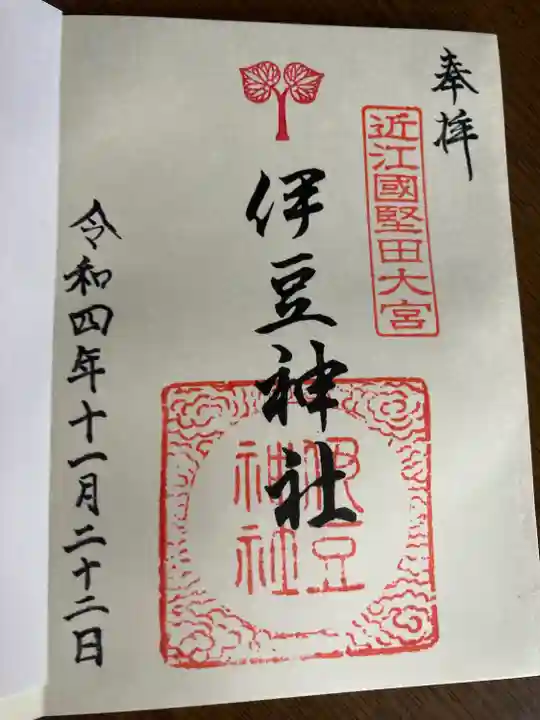 奉拝
近江國堅田大宮
伊豆神社
伊豆
神社
令和四年十一月二十二日